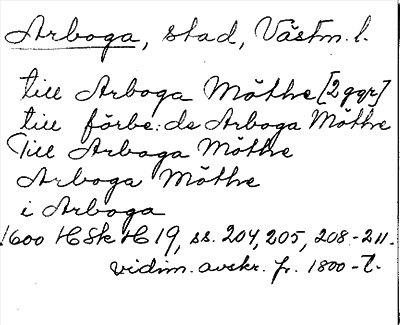 Arboga, stad, Västm. l.
till Arboga Möthe [2 ggr]
till förbe:de Arboga Möthe
Till Arboga Möthe
Arboga Möthe
i Arboga
1600 HSk H 19, ss. 204, 205, 208-211.
vidim. avskr. fr. 1800-t.